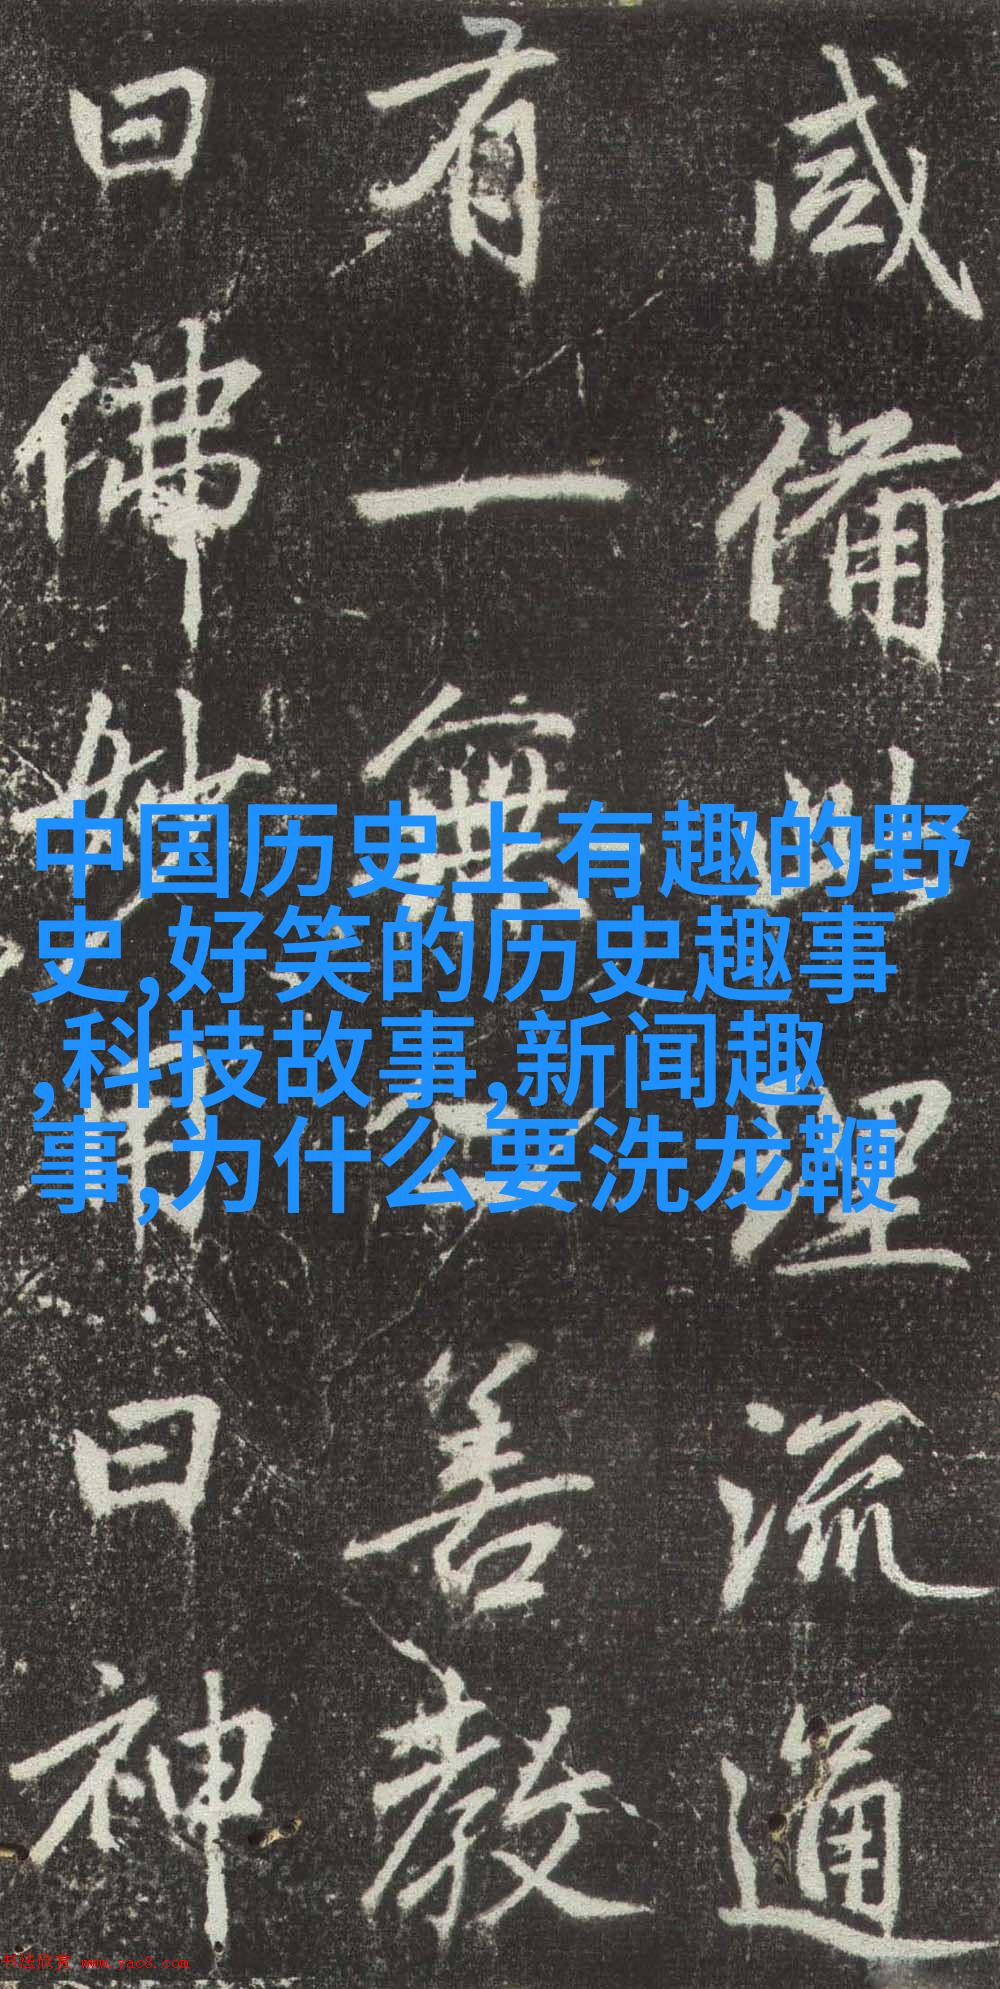 咸備此理流通
有一無二善教
曰佛妙用曰神
中国历史上有趣的野
史,好笑的历史趣事
,科技故事,新闻趣
事,为什么要洗龙鞭
书法欣赏 www.yac8.com